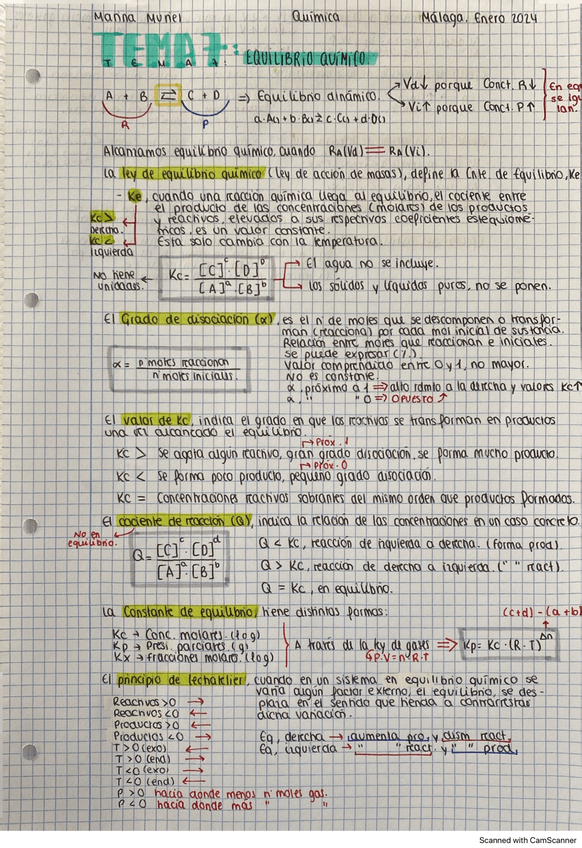 Marina Muñel Química Málaga, Enero 2024
TEMA 7: EQUILIBRIO QUÍMICO
T E M A 7:
A + B ⇄ C + D ⇒ Equilibrio dinámico. → Vd↓ porque Conct. R↓
→ Vi↑ porque Conct. P↑
En eq
se igu
lan.
R P a·A(s) + b·B(s) ⇄ c·C(s) + d·D(s)
Alcanzamos equilibrio químico, cuando RA(Vd) = RA(Vi).
La ley de equilibrio químico (ley de acción de masas), define la Cnte de Equilibrio, Ke
- Ke, cuando una reacción química llega al equilibrio, el cociente entre
el producto de las concentraciones (molares) de los productos
y reactivos, elevados a sus respectivos coeficientes estequiomé-
tricos, es un valor constante.
Esta solo cambia con la temperatura.
Kc >
derecha.
Kc <
izquierda
No tiene
unidades.
Kc = [C]^c · [D]^D / [A]^a · [B]^b
→ El agua no se incluye.
→ los sólidos y líquidos puros, no se ponen.
El Grado de disociación (α), es el nº de moles que se descomponen o transfor-
man (reacciona) por cada mol inicial de sustancia.
Relación entre moles que reaccionan e iniciales.
Se puede expresar (%).
Valor comprendido entre 0 y 1, no mayor.
No es constante.
α = nº moles reaccionan / nº moles iniciales.
α próximo a 1 ⇒ alto rdmto a la derecha y valores Kc↑
α, " " 0 ⇒ opuesto ↑
El valor de Kc, indica el grado en que los reactivos se transforman en productos
una vez alcanzado el equilibrio.
→ Próx. 1
Kc > Se agota algún reactivo, gran grado disociación, se forma mucho producto.
→ Próx. 0
Kc < Se forma poco producto, pequeño grado disociación.
Kc = Concentraciones reactivos sobrantes del mismo orden que productos formados.
El cociente de reacción (Q), indica la relación de las concentraciones en un caso concreto.
No en
equilibrio.
Q = [C]^c · [D]^d / [A]^a · [B]^b
Q < Kc, reacción de izquierda a derecha. (forma prod)
Q > Kc, reacción de derecha a izquierda. (" " react).
Q = Kc, en equilibrio.
La Constante de equilibrio, tiene distintas formas:
Kc → Conc. molares. (l o g)
Kp → Presi. parciales. (g)
Kx → fracciones molares. (l o g)
A través de la ley de gases ⇒ Kp = Kc · (R·T)^Δn
P·V = n·R·T
(c+d) - (a+b)
El principio de Lechatelier, cuando en un sistema en equilibrio químico se
varía algún factor externo, el equilibrio, se des-
plaza en el sentido que tienda a contrarrestar
dicha variación.
Reactivos >0 →
Reactivos <0 ←
Productos >0 ←
Productos <0 →
T >0 (exo) ←
T >0 (end) →
T <0 (exo) →
T <0 (end) ←
P >0 hacia donde menos nº moles gas.
P <0 hacia donde más " "
Eq, derecha → aumenta pro. y dism react.
Eq, izquierda → " " react. y " " prod.
Scanned with CamScanner